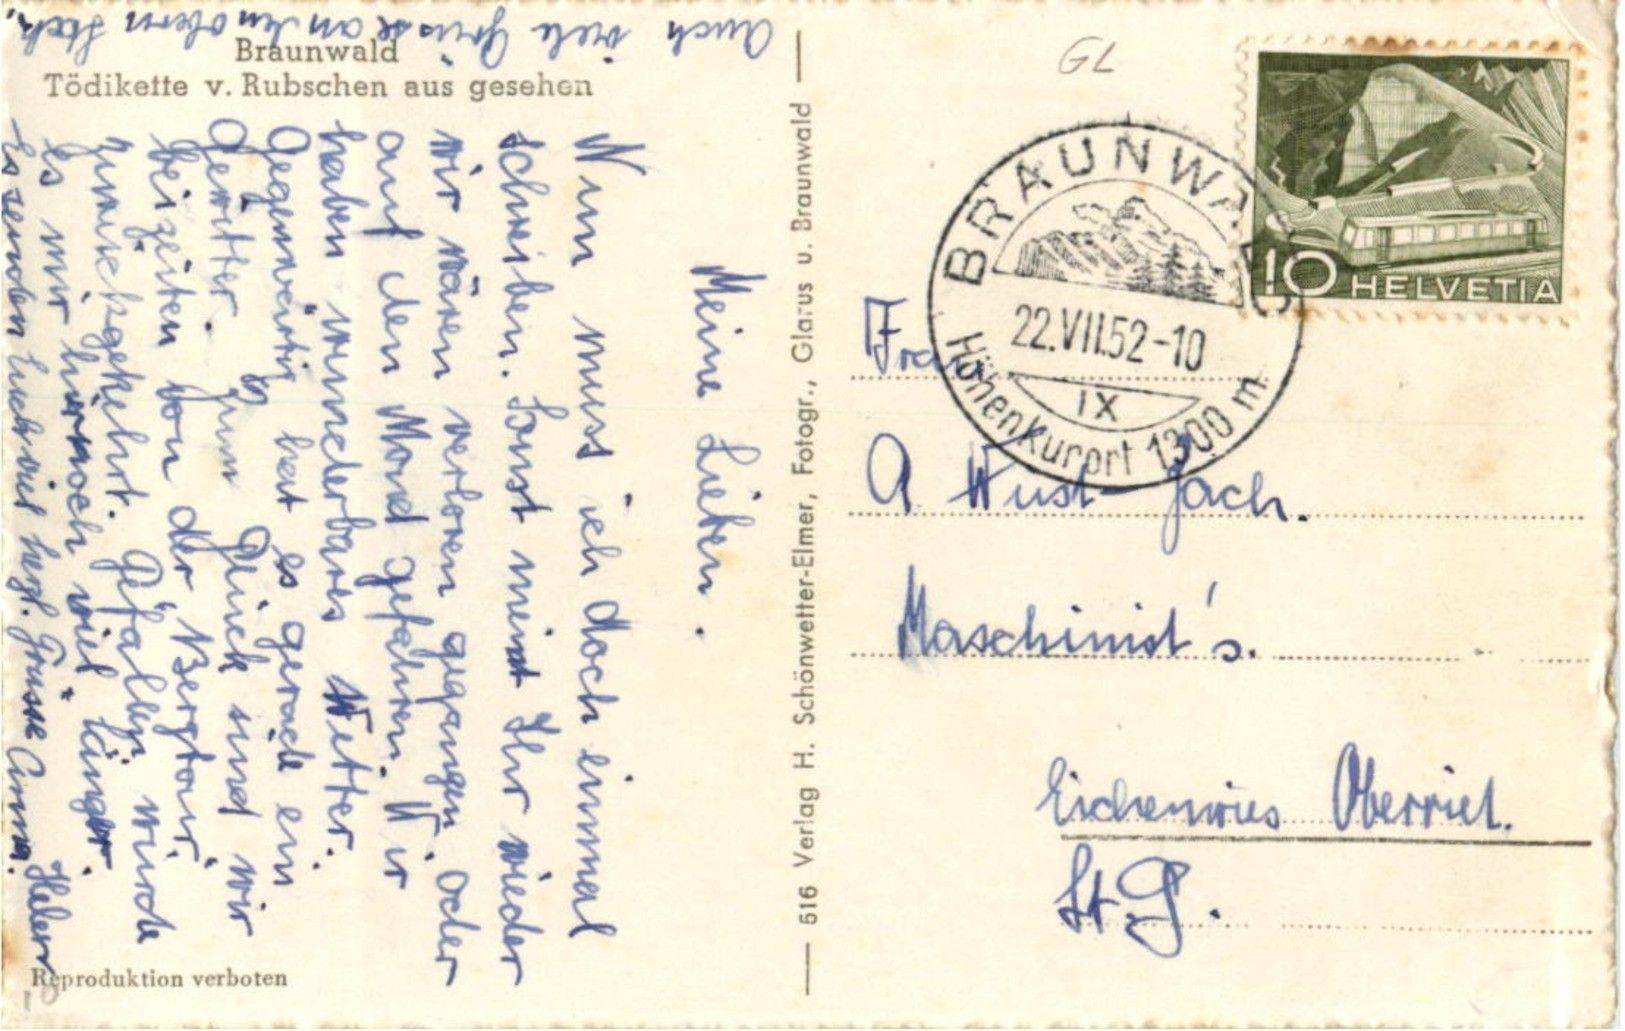 Braunwald
Tödikette v. Rubschen aus gesehen
Meine Lieben.
Nun muss ich doch einmal
schreiben. Sonst meint Ihr wieder
wir wären verloren gegangen oder
auf den Mond gefahren. Wir
haben wunderbares Wetter.
Gegenwärtig hat es gerade ein
Gewitter. Zum Glück sind wir
beizeiten von der Bergtour
zurückgekehrt. Gefallen würde
es mir hier noch viel länger.
Es senden Euch viel herzl. Grüsse Anna. Helen
Auch viele Grüsse an den obern Stock.
Reproduktion verboten
516 Verlag H. Schönwetter-Elmer, Fotogr., Glarus u. Braunwald
GL
BRAUNWALD
22.VII.52-10
IX
Höhenkurort 1300 m
10 HELVETIA
Frau
A Wüst-Zäch.
Maschinist's.
Eichenwies Oberriet.
St. G.